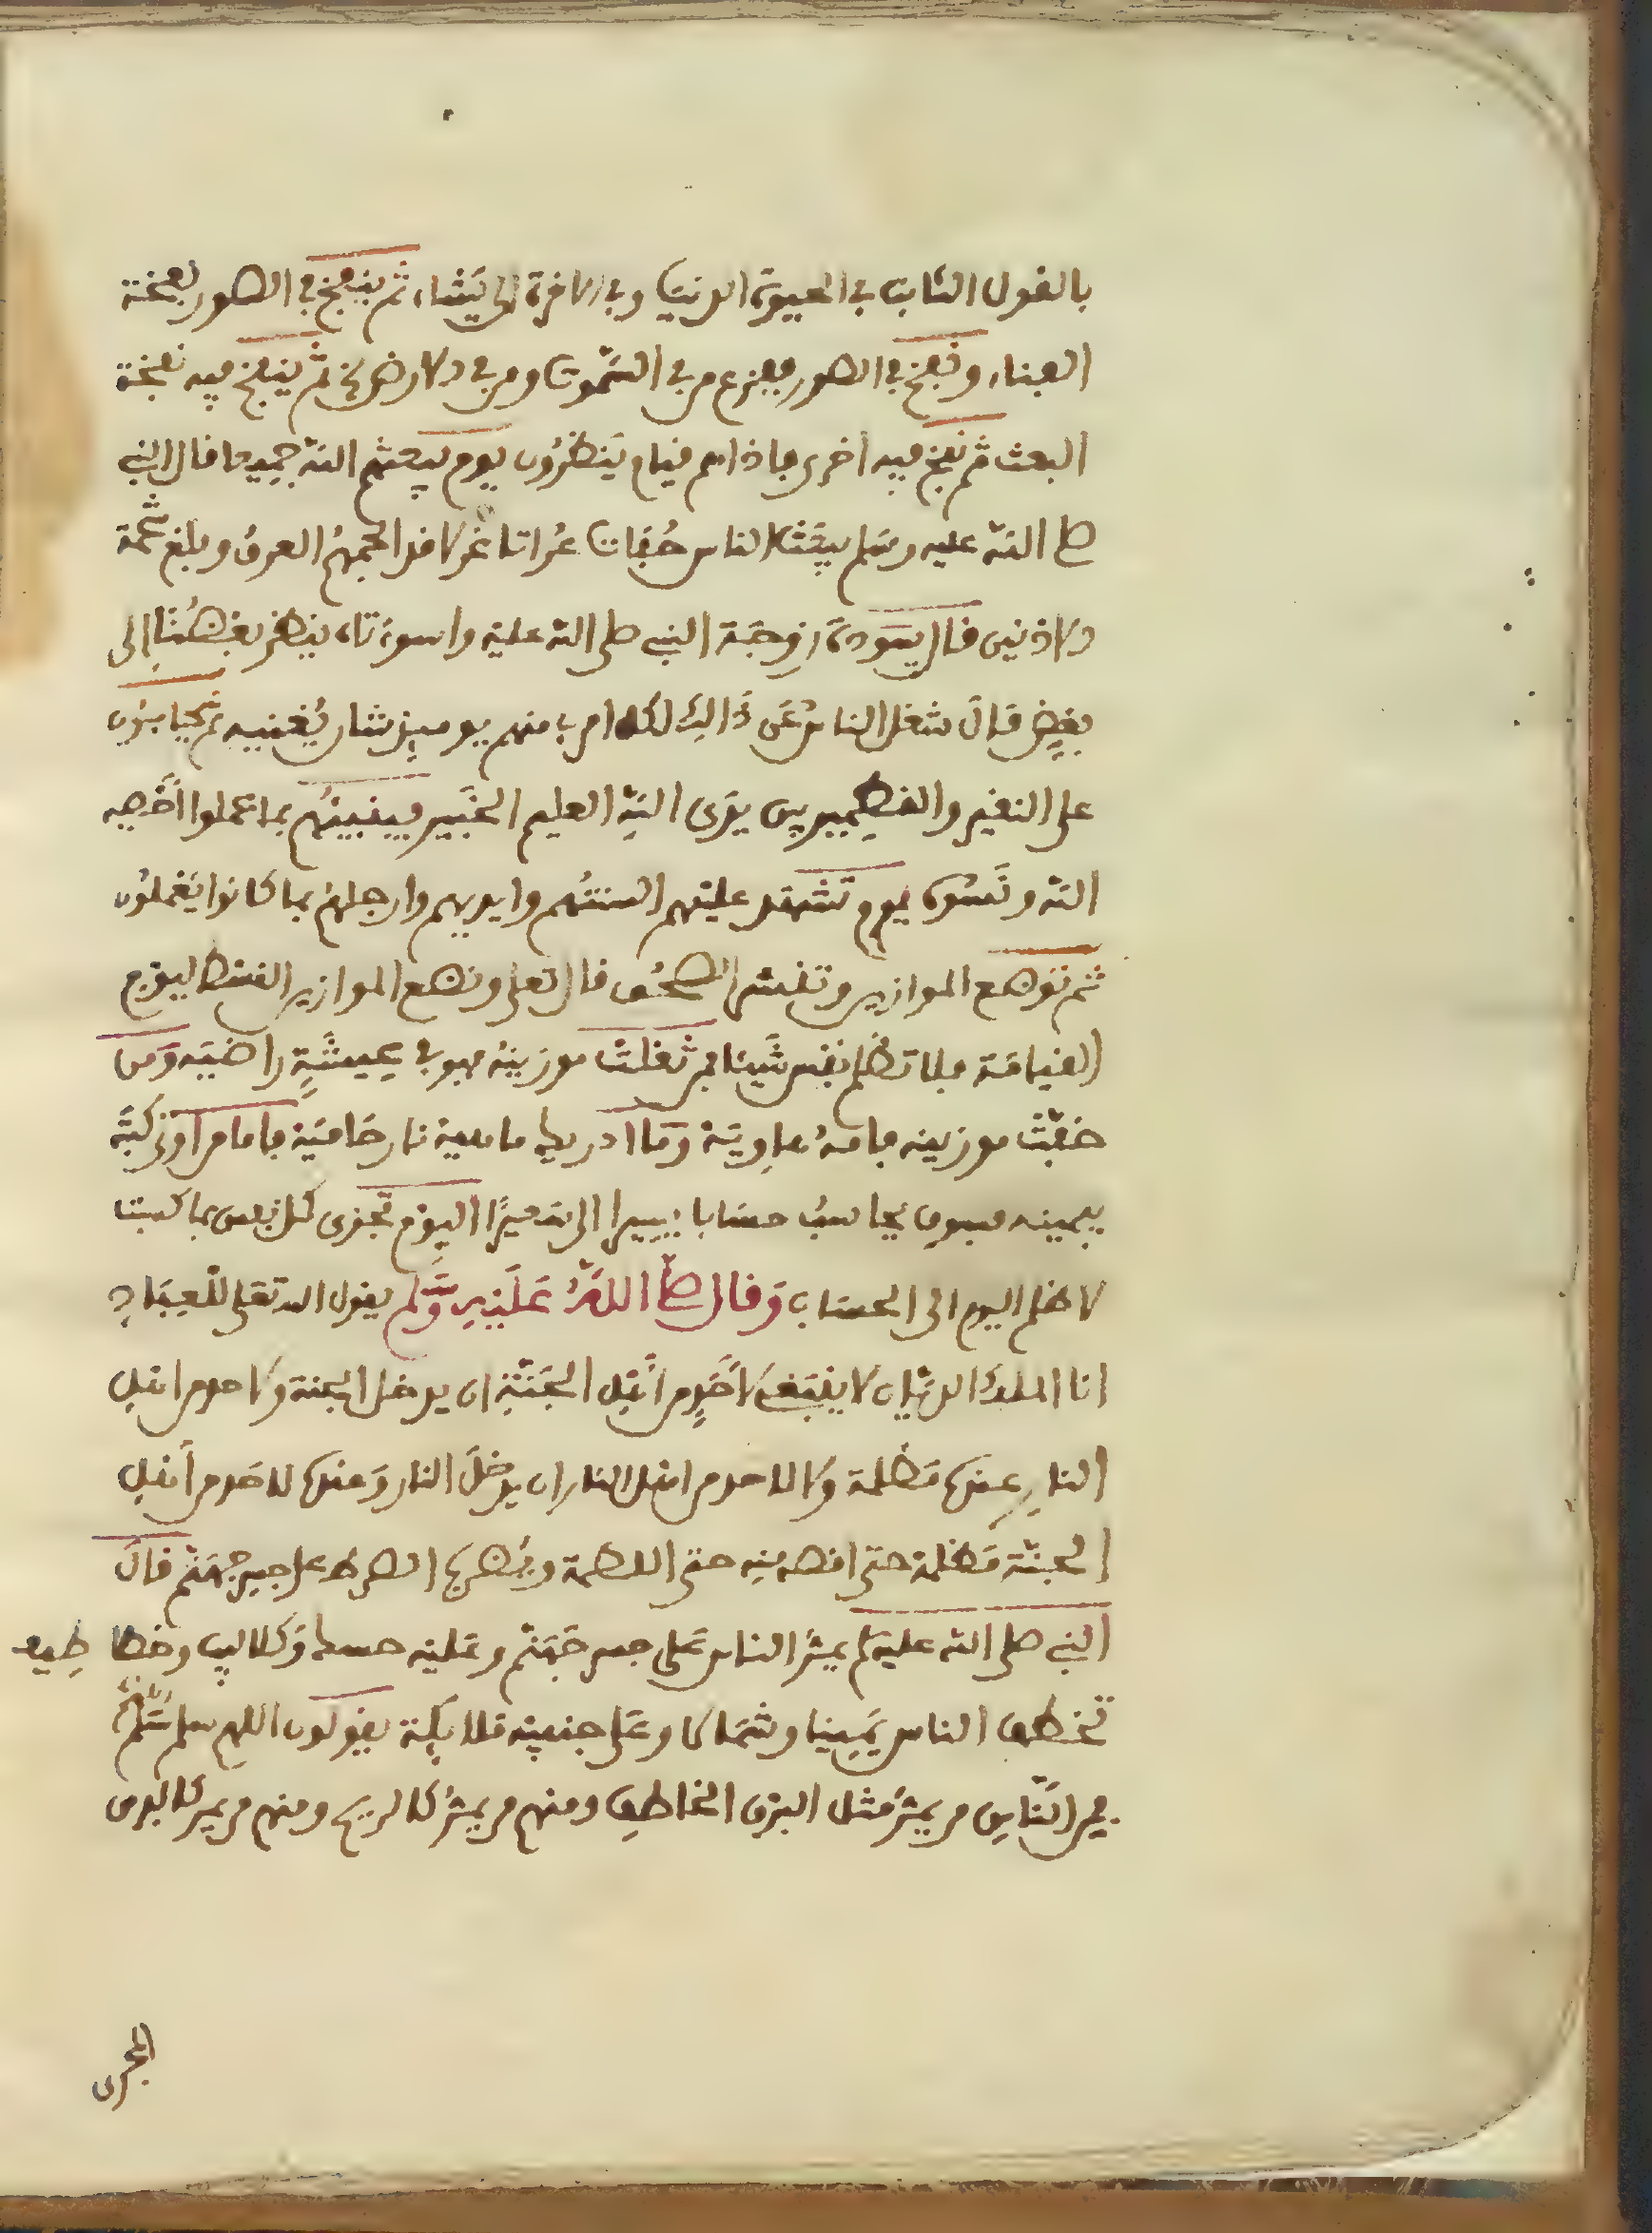 بالقول الثابت في الحيوة الدنيا وفي الاخرة الى يشاء ثم ينفخ في الصور نفخة
الفناء ونفخ في الصور ففزع من في السموت ومن في الارض ثم ينفخ فيه نفخة
البعث ثم نفخ فيه اخرى فاذا هم قيام ينظرون يوم يبعثهم الله جميعا قال النبي
صل الله عليه وسلم يبعث الناس حفاتا عراتا غرلا قد الجمهم العرق وبلغ شحمة
الاذنين قال سودة زوجة النبي صلى الله عليه واسوءتاه ينظر بعضنا الى
بعض قال شغل الناس عن ذالك لكل امرء منهم يوميذ شان يغنيه ثم يحاسبون
على النقير والقطمير بين يدى الله العليم الخبير فينبيهم بما عملوا احصيه
الله ونسوه يوم تشهد عليهم السنتهم وايديهم وارجلهم بما كانوا يعملون
ثم توضع الموازين وتنشر الصحف قال تعلى ونضع الموازين القسط ليوم
القيامة فلا تظلم نفس شيئا فمن ثقلت موزينه فهو في عيشة راضيه ومن
خفت موزينه فامه هاوية وما ادريك ماهيه نار حامية فاما من اوتي كتبه
بيمينه فسوف يحاسب حسابا يسيرا الى سعيرا اليوم تجزى كل نفس بما كسبت
لا ظلم اليوم الى الحساب وقال صل الله عليه وسلم يقول الله تعلى للعباد
انا الملك الديان لا ينبغي لاحد من اهل الجنة ان يدخل الجنة ولاحد من اهل
النار عنده مظلمة ولا لاحد من اهل النار ان يدخل النار وعنده لاحد من اهل
الجنة مظلمة حتى اقصه منه حتى اللطمة ويضرب الصرط على جسر جهنم قال
النبي صلى الله عليه يمر الناس على جسر جهنم وعليه حسك وكلاليب وخطا طيف
تخطف الناس يمينا وشمالا وعلى جنبيه ملايكة يقولون اللهم سلم سلم
فمن الناس من يمر مثل البرق الخاطف ومنهم من يمر كالريح ومنهم من يمر كالفرس
المجرى